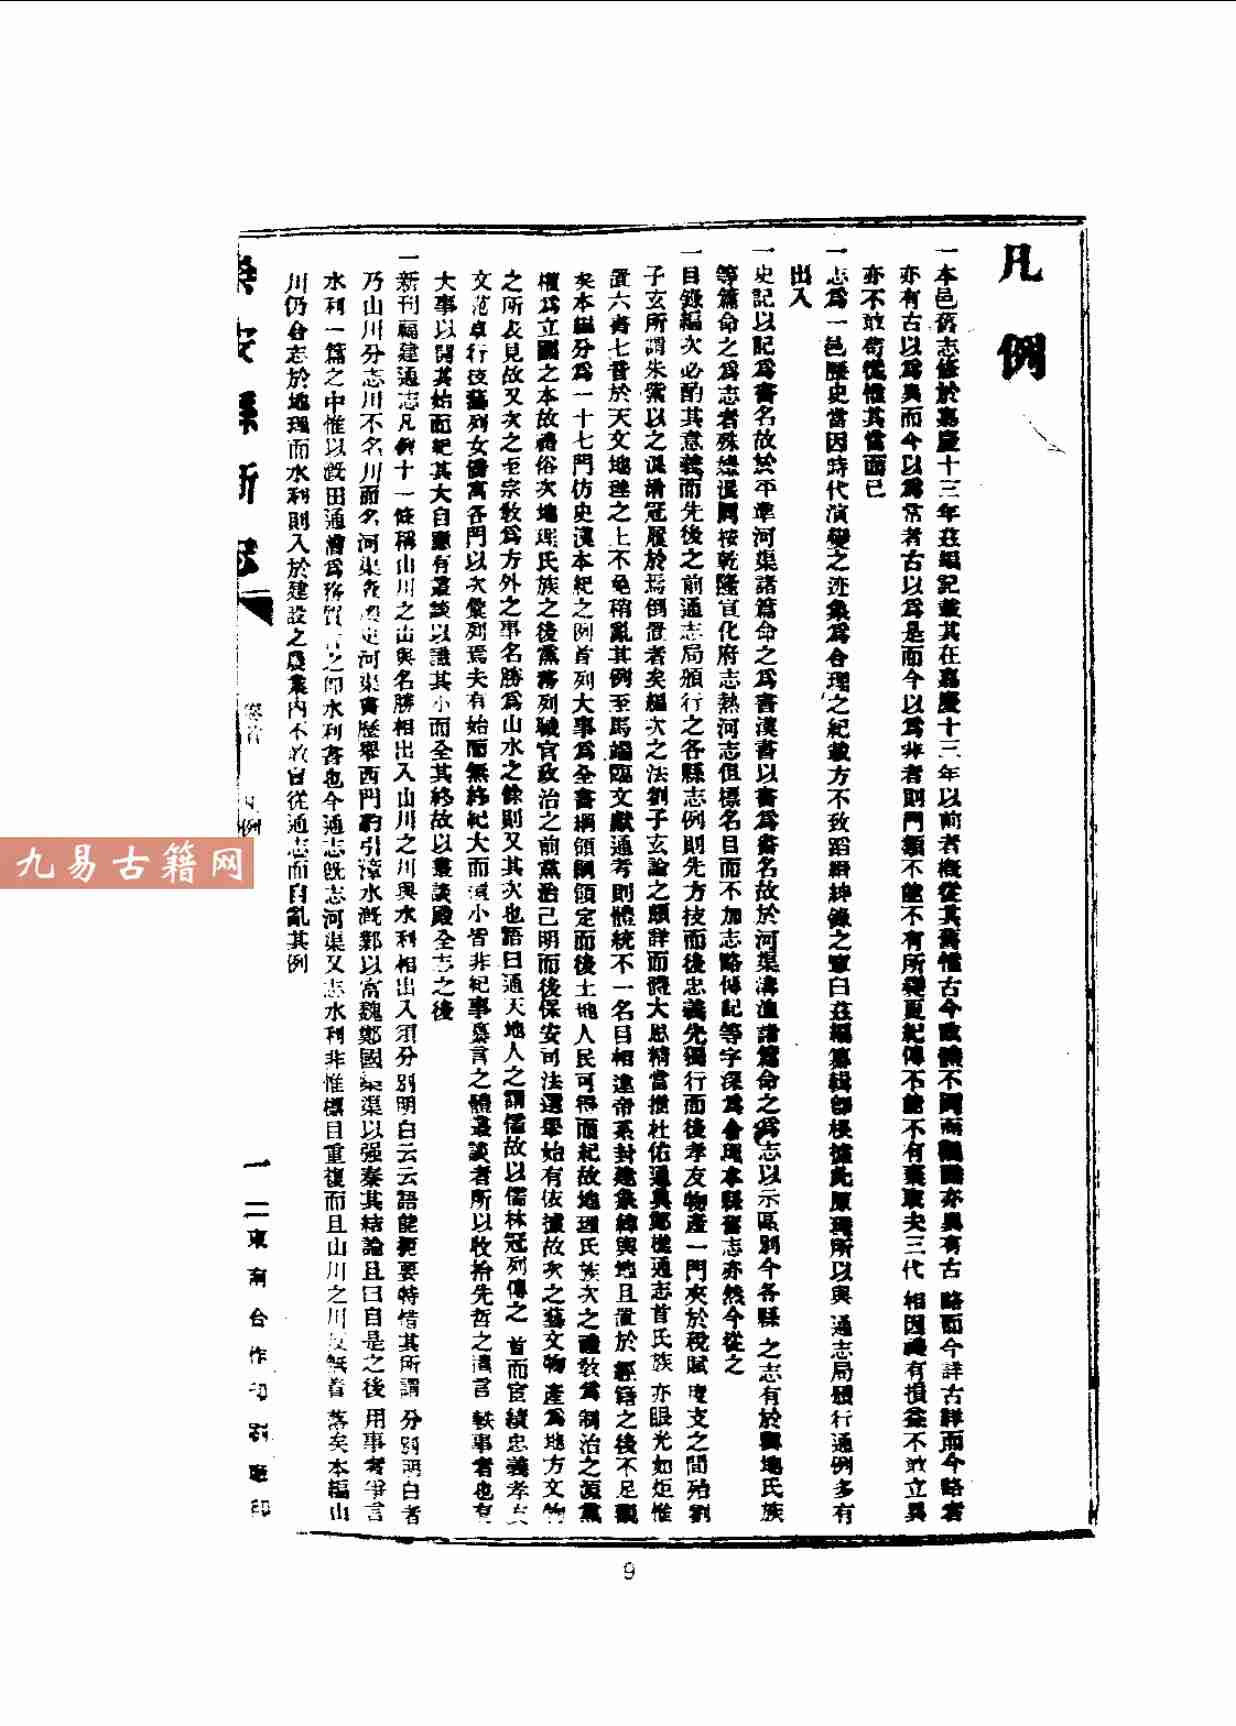 凡例
一本邑舊志修於嘉慶十三年茲編記載其在嘉慶十三年以前者槪從其舊惟古今政體不同而觀念亦異有古略而今詳古詳而今略者
亦有古以爲異而今以爲常者古以爲是而今以爲非者則門類不能不有所變更紀傳不能不有棄取夫三代相因禮有損益不敢立異
亦不敢苟從惟其當而已
一志爲一邑歷史當因時代演變之迹象爲合理之紀載方不致蹈之茲編纂輯卽根據此原理所以與通志局頒行通例多有
出入
一史記以記爲書名故於平準河渠諸篇命之爲書漢書以書爲書名故於河渠溝洫諸篇命之爲志以示區別今各縣之志有於輿地氏族
等篇命之爲志者殊嫌混同按乾隆宣化府志熱河志但標名目而不加志略傳記等字深爲合理本縣舊志亦然今從之
一目錄編次必酌其意義而先後之前通志局頒行之各縣志例則先方技而後忠義先獨行而後孝友物產一門夾於稅賦度支之間殆劉
子玄所謂朱紫以之混淆冠履於焉倒置者矣編次之法劉子玄論之頗詳而體大思精當推杜佑通典鄭樵通志首氏族亦眼光如炬惟
置六書七音於天文地理之上不免稍亂其例至馬端臨文獻通考則體統不一名目相違帝系封建象緯輿地且置於經籍之後不足觀
矣本編分爲一十七門仿史漢本紀之例首列大事爲全書綱領綱領定而後土地人民可得而紀故地理氏族次之禮敎爲制治之源黨
權爲立國之本故禮俗次地理氏族之後黨務列職官政治之前黨治己明而後保安司法選舉始有依據故次之藝文物產爲地方文物
之所表見故又次之至宗敎爲方外之事名勝爲山水之餘則又其次也語曰通天地人之謂儒故以儒林冠列傳之首而宦績忠義孝友
文苑卓行技藝列女僑寓各門以次彙列焉夫有始而無終紀大而遺小皆非紀事纂言之體叢談者所以收拾先哲之遺言軼事者也有
大事以開其始而紀其大自應有叢談以識其小而全其終故以叢談殿全志之後
一新刊福建通志凡例十一條稱山川之山與名勝相出入山川之川與水利相出入須分別明白云云語能扼要特惜其所謂分別明白者
乃山川分志川不名川而名河渠查史河渠書歷舉西門豹引漳水漑鄴以富魏鄭國渠以强秦其結論且曰自是之後用事者爭言
水利一篇之中惟以漑田通漕爲務之卽水利書也今通志旣志河渠又志水利非惟標目重複而且山川之川無着落矣本編山
川仍合志於地理而水利則入於建設之農業內不敢盲從通志而自亂其例
樂安縣新志
卷首
凡例
一
二東南合作印刷廠印
9
九易古籍网